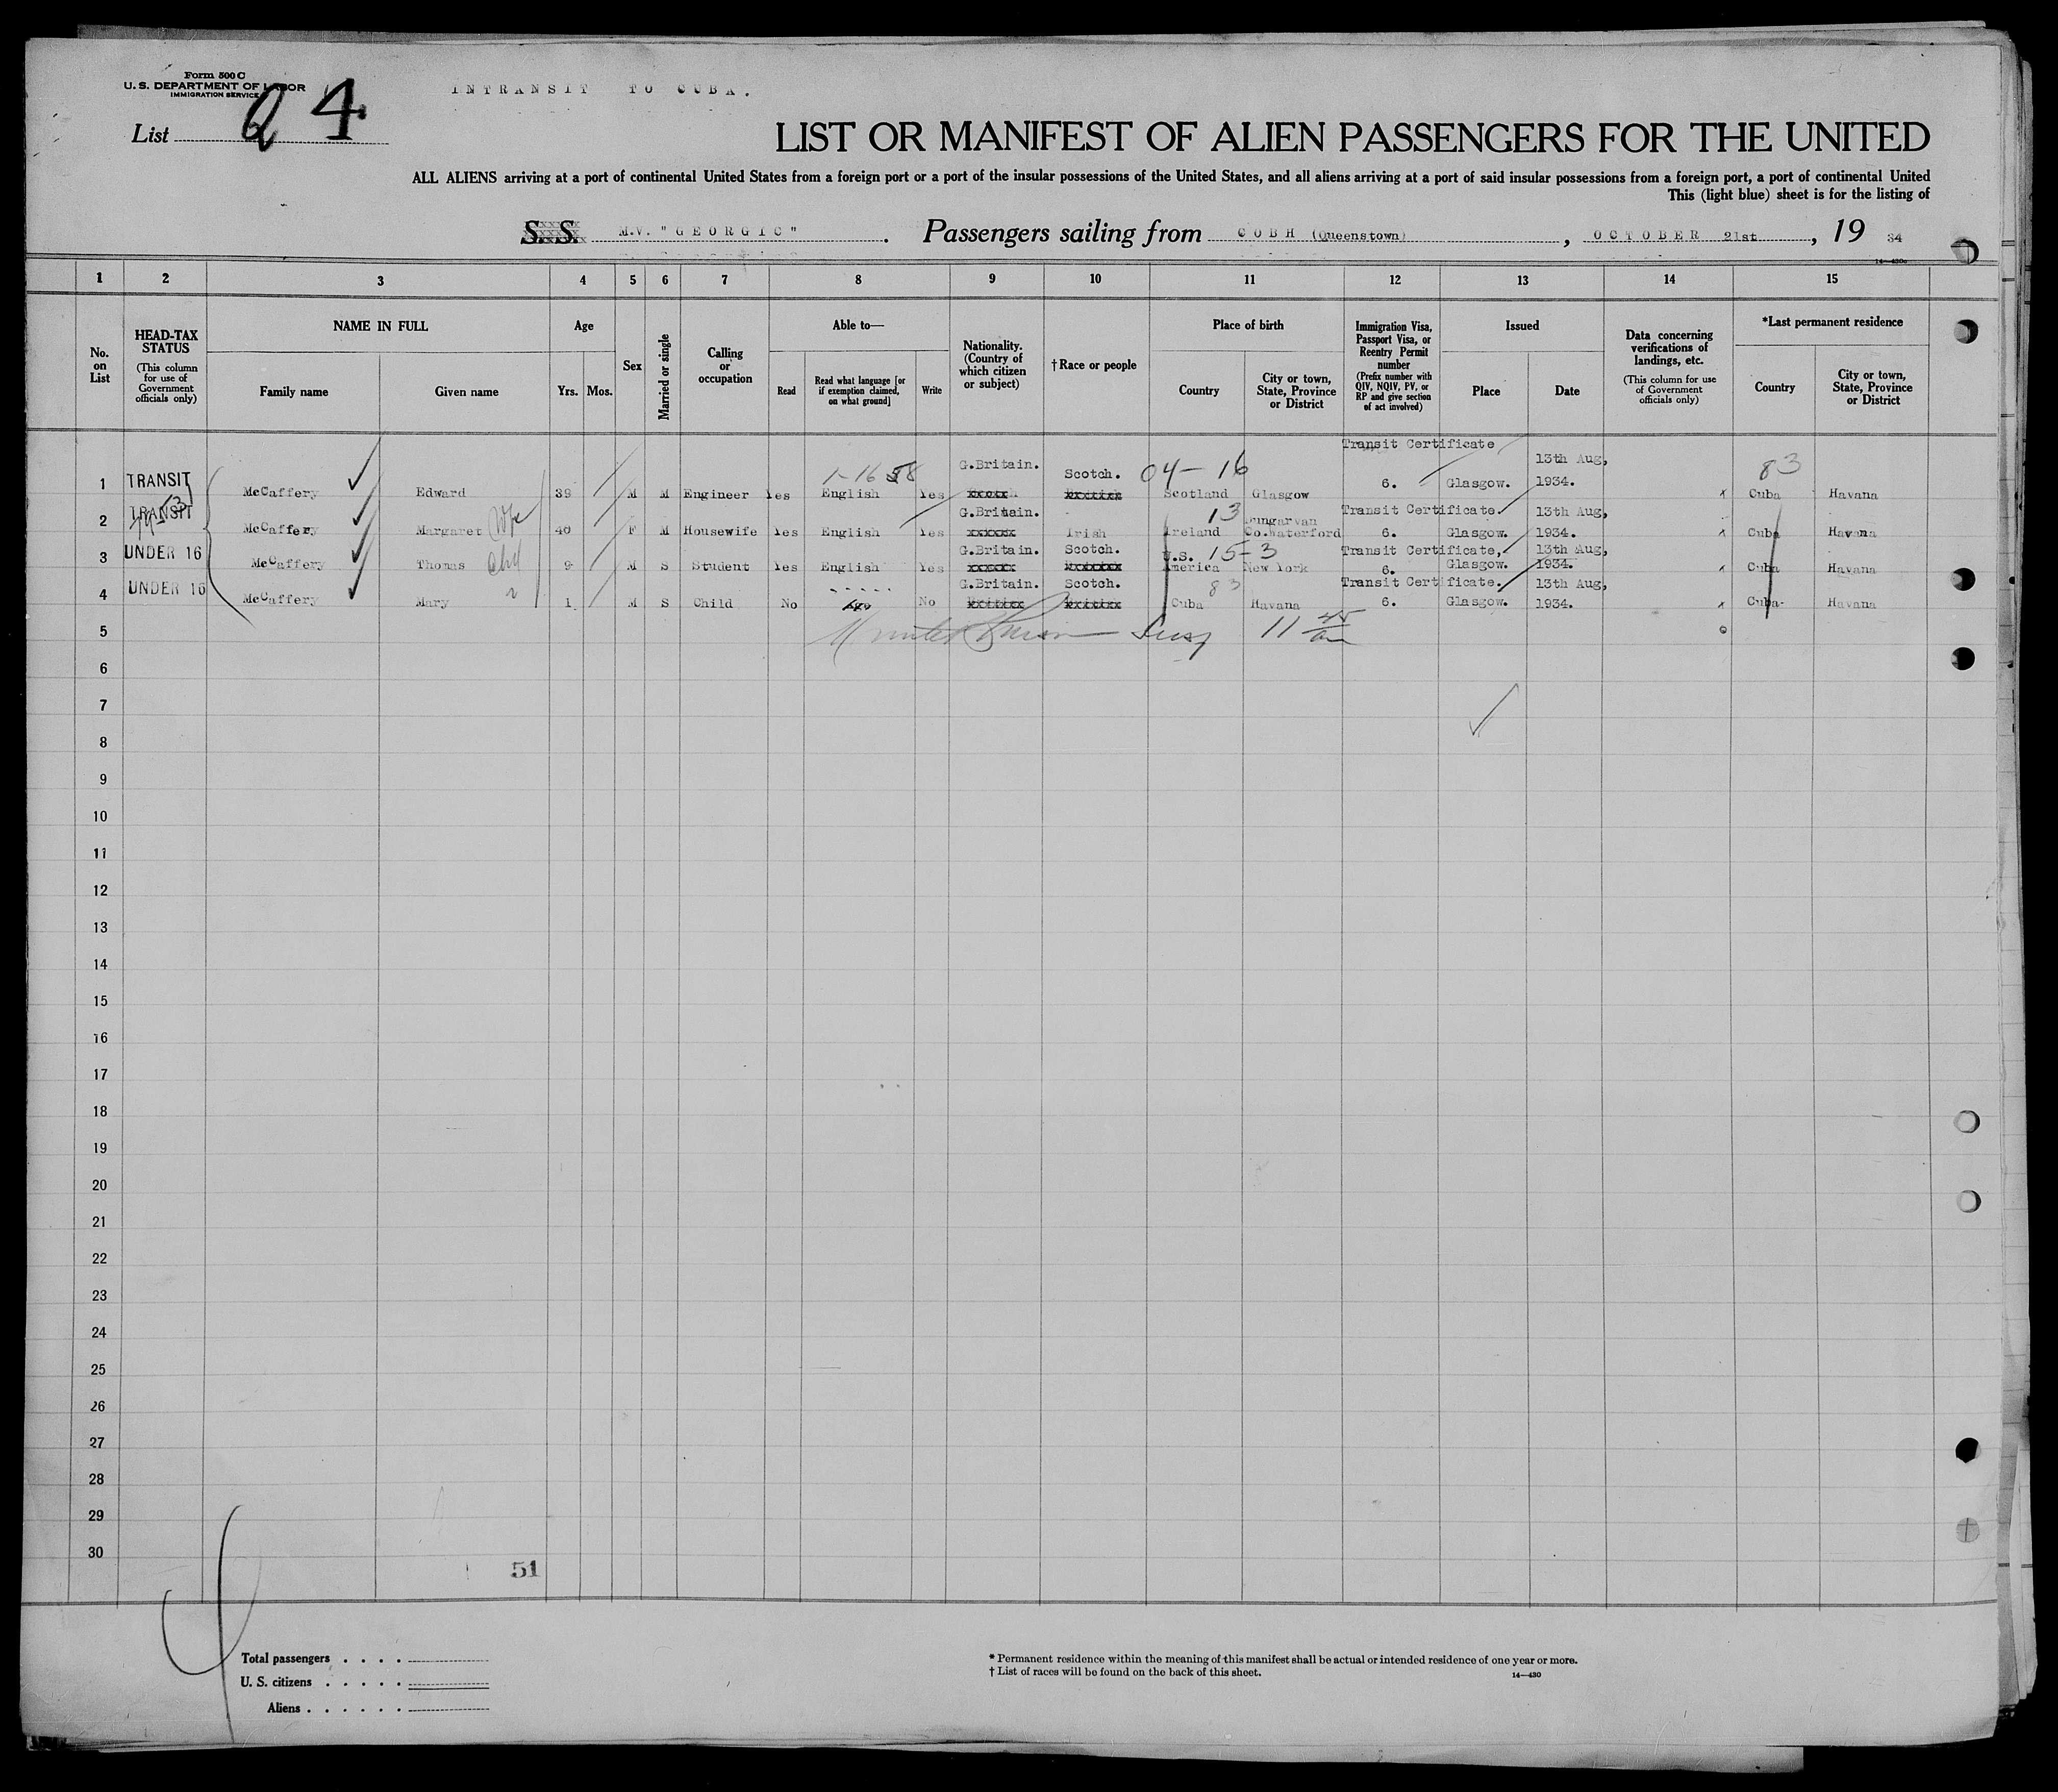 Form 500 C
U. S. DEPARTMENT OF LABOR
IMMIGRATION SERVICE
INTRANSIT TO CUBA.
List 4
LIST OR MANIFEST OF ALIEN PASSENGERS FOR THE UNITED
ALL ALIENS arriving at a port of continental United States from a foreign port or a port of the insular possessions of the United States, and all aliens arriving at a port of said insular possessions from a foreign port, a port of continental United
This (light blue) sheet is for the listing of
S. S. M.V. "GEORGIC". Passengers sailing from COBH (Queenstown), OCTOBER 21st, 19 34
14—430a
1 2 3 4 5 6 7 8 9 10 11 12 13 14 15
No. on List
HEAD-TAX STATUS
(This column for use of Government officials only)
NAME IN FULL
Family name Given name
Age
Yrs. Mos.
Sex
Married or single
Calling or occupation
Able to—
Read
Read what language [or if exemption claimed, on what ground]
Write
Nationality. (Country of which citizen or subject)
† Race or people
Place of birth
Country
City or town, State, Province or District
Immigration Visa, Passport Visa, or Reentry Permit number
(Prefix number with QIV, NQIV, PV, or RP and give section of act involved)
Issued
Place Date
Data concerning verifications of landings, etc.
(This column for use of Government officials only)
*Last permanent residence
Country
City or town, State, Province or District
1 TRANSIT McCaffery Edward 39 M M Engineer Yes English Yes G.Britain. Scotch. 04-16 Scotland Glasgow Transit Certificate 6. Glasgow. 13th Aug, 1934. 83 Cuba Havana
2 TRANSIT McCaffery Margaret Wfe 40 F M Housewife Yes English Yes G.Britain. Irish 13 Ireland Dungarvan Co.Waterford Transit Certificate. 6. Glasgow. 13th Aug, 1934. Cuba Havana
3 UNDER 16 McCaffery Thomas Chd 9 M S Student Yes English Yes G.Britain. Scotch. U.S. America 15-3 New York Transit Certificate, 6. Glasgow. 13th Aug, 1934. Cuba Havana
4 UNDER 16 McCaffery Mary 1 M S Child No No G.Britain. Scotch. 83 Cuba Havana Transit Certificate. 6. Glasgow. 13th Aug, 1934. Cuba Havana
5
6
7
8
9
10
11
12
13
14
15
16
17
18
19
20
21
22
23
24
25
26
27
28
29
30
51
Total passengers
U. S. citizens
Aliens
* Permanent residence within the meaning of this manifest shall be actual or intended residence of one year or more.
† List of races will be found on the back of this sheet.
14—430